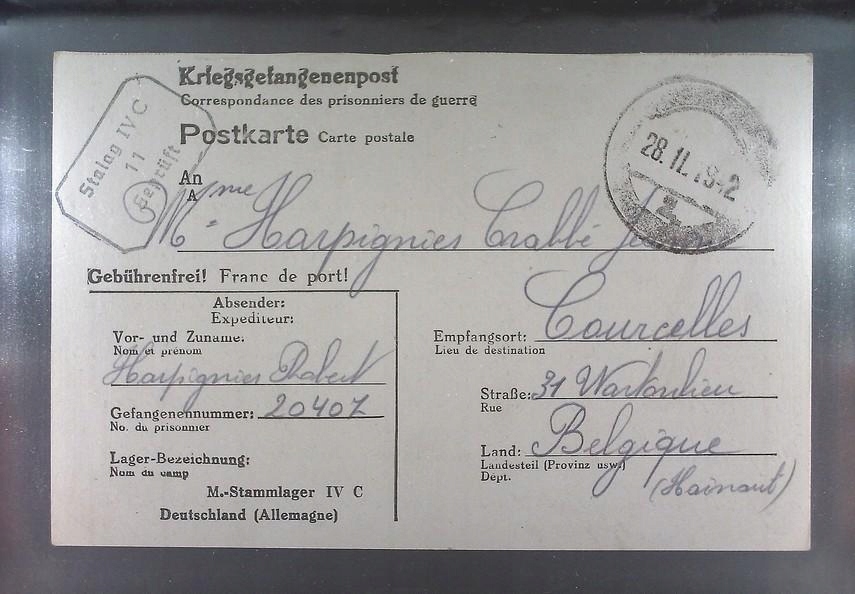 Kriegsgefangenenpost
Correspondance des prisonniers de guerre
Postkarte Carte postale
Stalag IV C
11
Geprüft
28.11.1942
2
An
A
Mme Harpignies Crabbé
Gebührenfrei! Franc de port!
Absender:
Expediteur:
Vor- und Zuname:
Nom et prénom
Harpignies Robert
Gefangenennummer: 20407
No. du prisonnier
Lager-Bezeichnung:
Nom du camp
M.-Stammlager IV C
Deutschland (Allemagne)
Empfangsort: Courcelles
Lieu de destination
Straße: 31
Rue
Land: Belgique
Landesteil (Provinz usw.)
Dept.
(Hainaut)